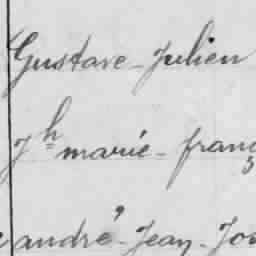 Gustave - Julien
Jh marie - franç
andré - Jean - Jos